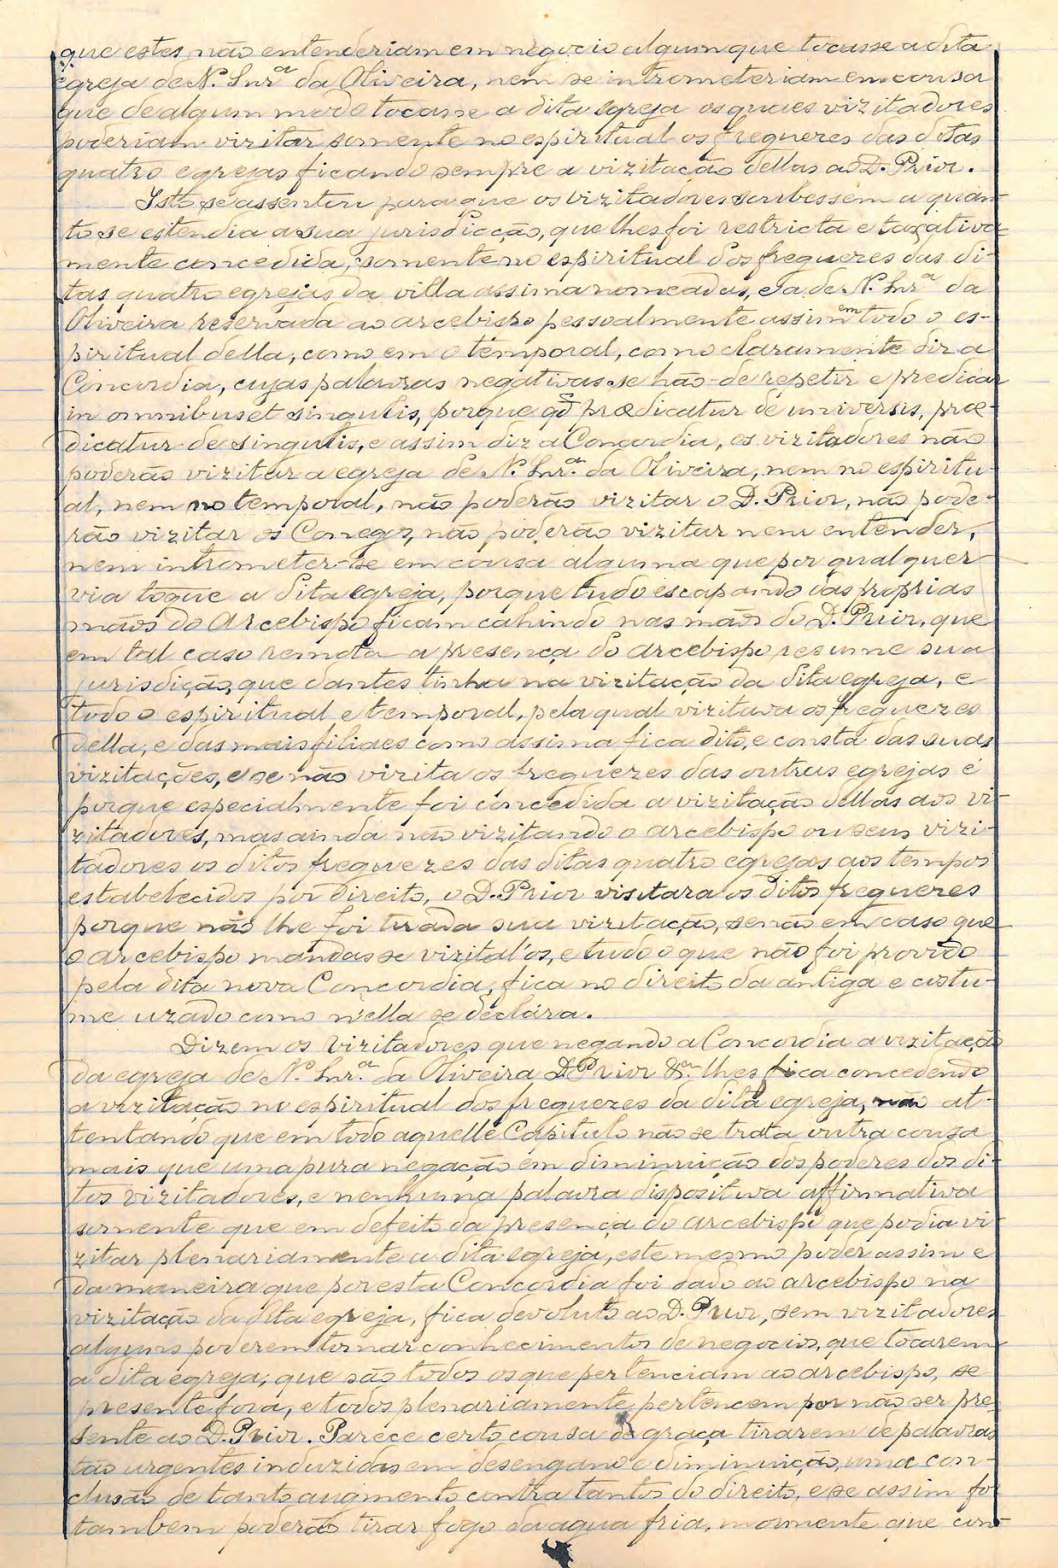 que estes não entenderiam em negocio algum que tocasse a dita
egreja de N. Snrª da Oliveira, nem se intrometeriam em cousa
que de algum modo tocasse a dita egreja os quaes vizitadores
poderiam vizitar somente no espiritual os freguezes das ditas
quatro egrejas ficando sempre a vizitação dellas ao D. Prior.
Isto se assentou para que os vizitadores soubessem a quan-
to se estendia a sua jurisdicção, que lhes foi restricta e taxativa-
mente concedida, somente no espiritual dos freguezes das di-
tas quatro egrejas da villa assima nomeadas, e a de N. Snrª da
Oliveira reservada ao arcebispo pessoalmente assim em todo o es-
piritual della, como em o temporal, como claramente diz a
Concordia, cujas palavras negativas se hão-de repetir e predicar
in omnibus et singulis, porque qd prædicatur de universis, præ-
dicatur de singulis, e assim diz a Concordia, os vizitadores não
poderão vizitar a egreja de N. Snrª da Oliveira, nem no espiritu-
al, nem no temporal, não poderão vizitar o D. Prior, não pode-
rão vizitar os Conegos, não poderão vizitar nem entender,
nem intrometer-se em cousa alguma que por qualquer
via toque a dita egreja, porque tudo escapando das proprias
mãos do Arcebispo ficam cahindo nas mãos do D. Prior, que
em tal caso remota a presença do arcebispo resume sua
jurisdição, que dantes tinha na vizitação da dita egreja, e
todo o espiritual e temporal, pela qual vizitava os freguezes
della, e das mais filiaes como assima fica dito, e consta das suas
vizitações, e se não vizita os freguezes das outras egrejas é
porque especialmente foi concedida a vizitação dellas aos vi-
zitadores, mas ainda não vizitando o arcebispo ou seus vizi-
tadores os ditos freguezes das ditas quatro egrejas aos tempos
estabelecidos por direito, o D. Prior visitara os ditos freguezes
porque não lhe foi tirada sua vizitação, senão em caso que
o arcebispo mandasse vizital'os, e tudo o que não foi provido
pela dita nova Concordia, fica no direito da antiga e costu-
me uzado como n'ella se declara.
Dizem os Vizitadores que negando a Concordia a vizitação
da egreja de N. Snrª da Oliveira D. Prior &ª lhes fica concedendo
a vizitação no espiritual dos freguezes da dita egreja, não at-
tentando que em todo aquelle Capitulo não se trata outra cousa
mais que uma pura negação em diminuição dos poderes dos di-
tos vizitadores, e nenhuma palavra dispositiva affirmativa
somente que em defeito da presença do arcebispo que podia vi-
zitar plenariamente a dita egreja, este mesmo poder assim e
da maneira que por esta Concordia foi dado ao arcebispo na
vizitação da dita egreja, fica devoluto ao D. Prior, sem vizitadores
alguns poderem tomar conhecimento de negocios, que tocarem
a dita egreja, que são todos os que pertenciam ao arcebispo, se
presente fora, e todos plenariamente pertencem por não ser pre-
sente ao D. Prior. Parece certo cousa de graça tirarem de palavras
tão urgentes induzidas em desengano e diminuição, uma con-
clusão de tanto augmento contra tanto do direito, e se assim for
tambem poderão tirar fogo da agua fria, mormente que con-